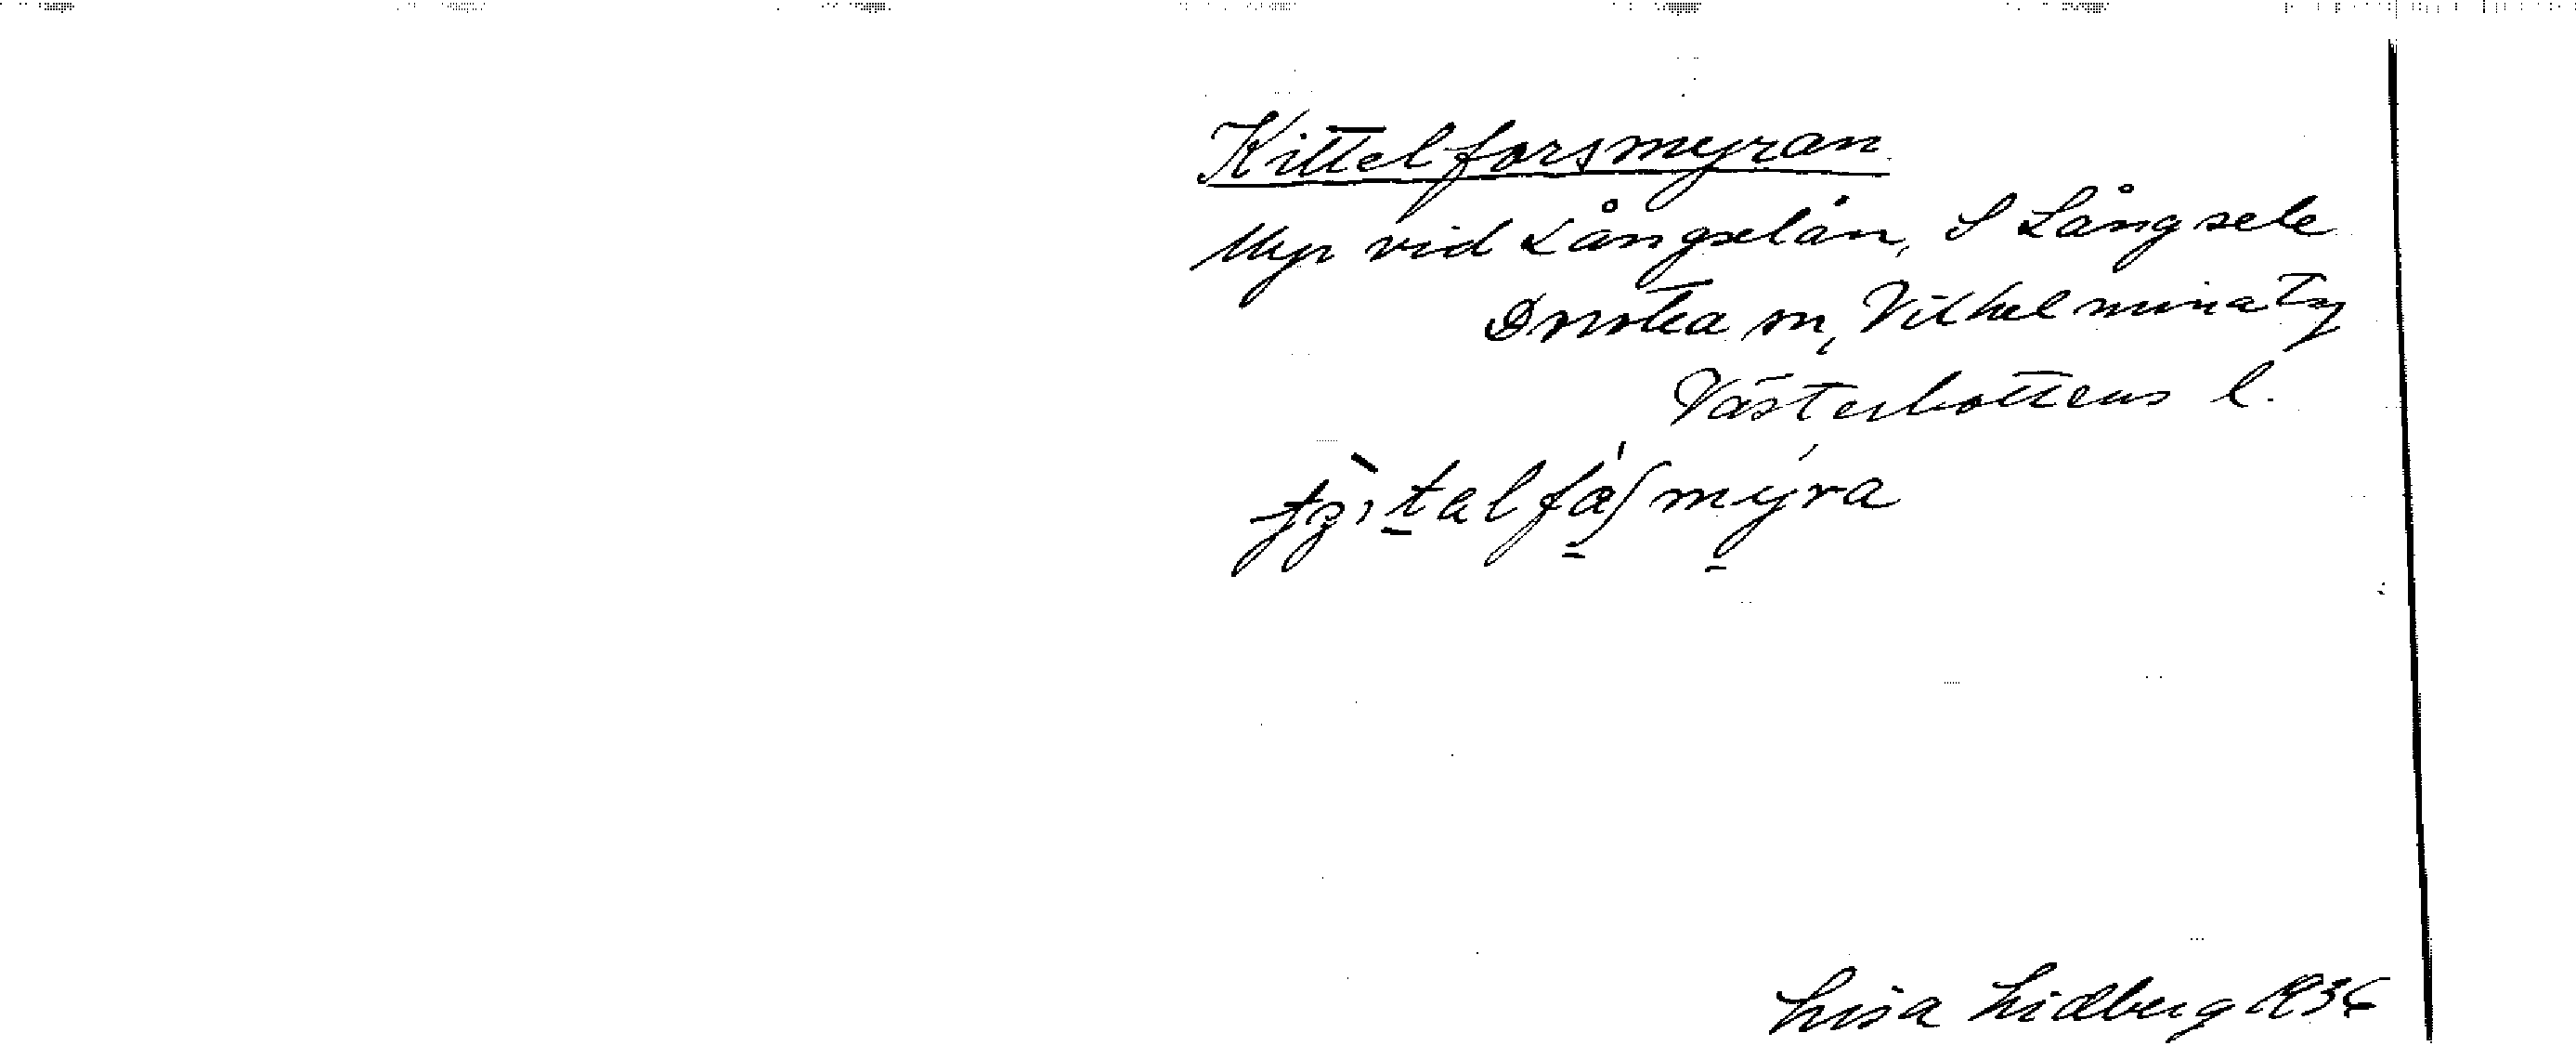 Kittelforsmyran
Myr vid Långselån, S Långsele
Dorotea sn, Vilhelmina tg
Västerbottens l.
Lisa Lidberg 1936